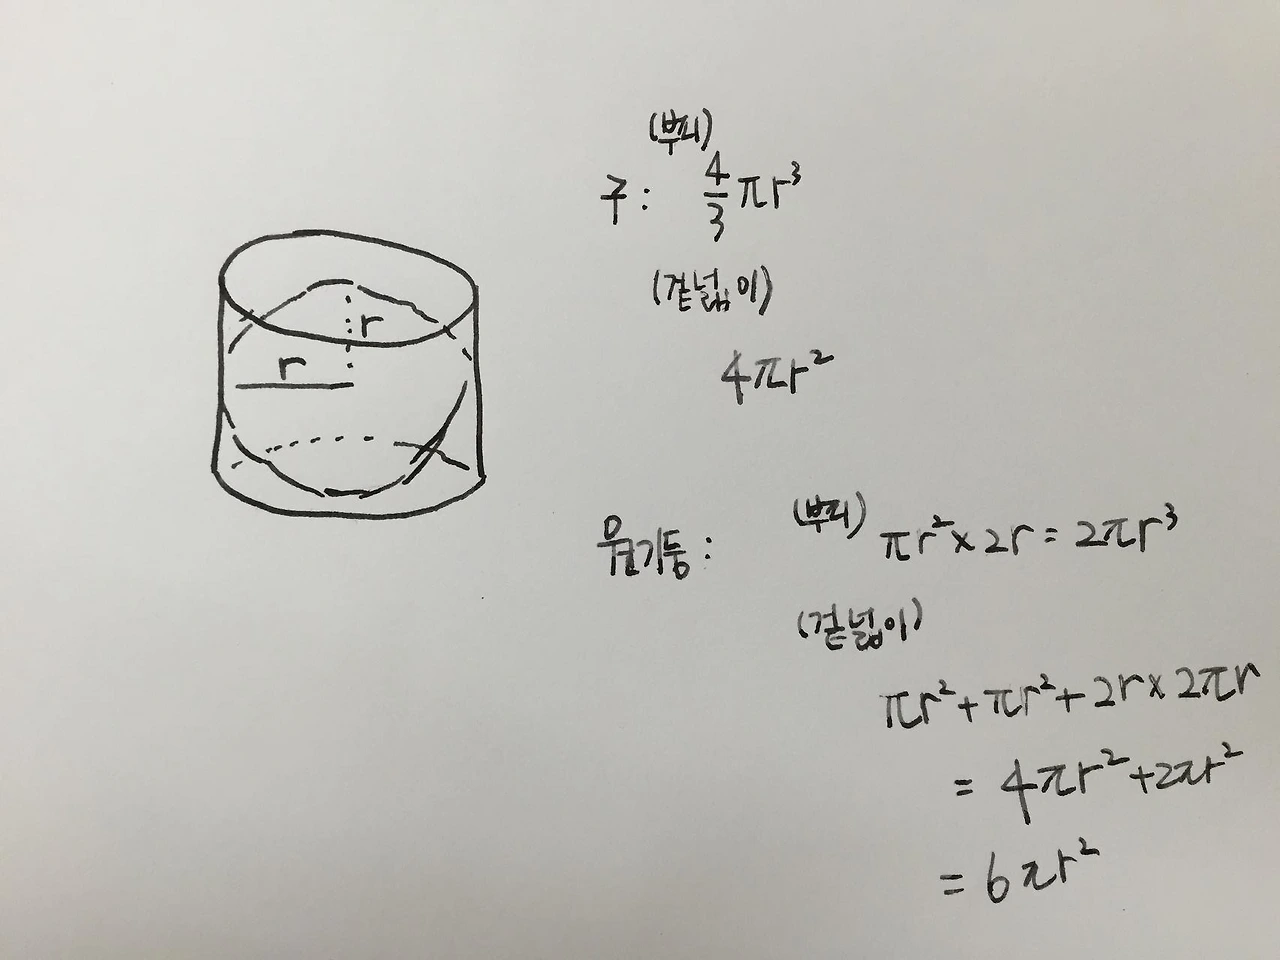 r
r
(부피)
구: 4/3 πr³
(겉넓이)
4πr²
원기둥: (부피) πr²×2r=2πr³
(겉넓이)
πr²+πr²+2r×2πr
= 4πr²+2πr²
= 6πr²